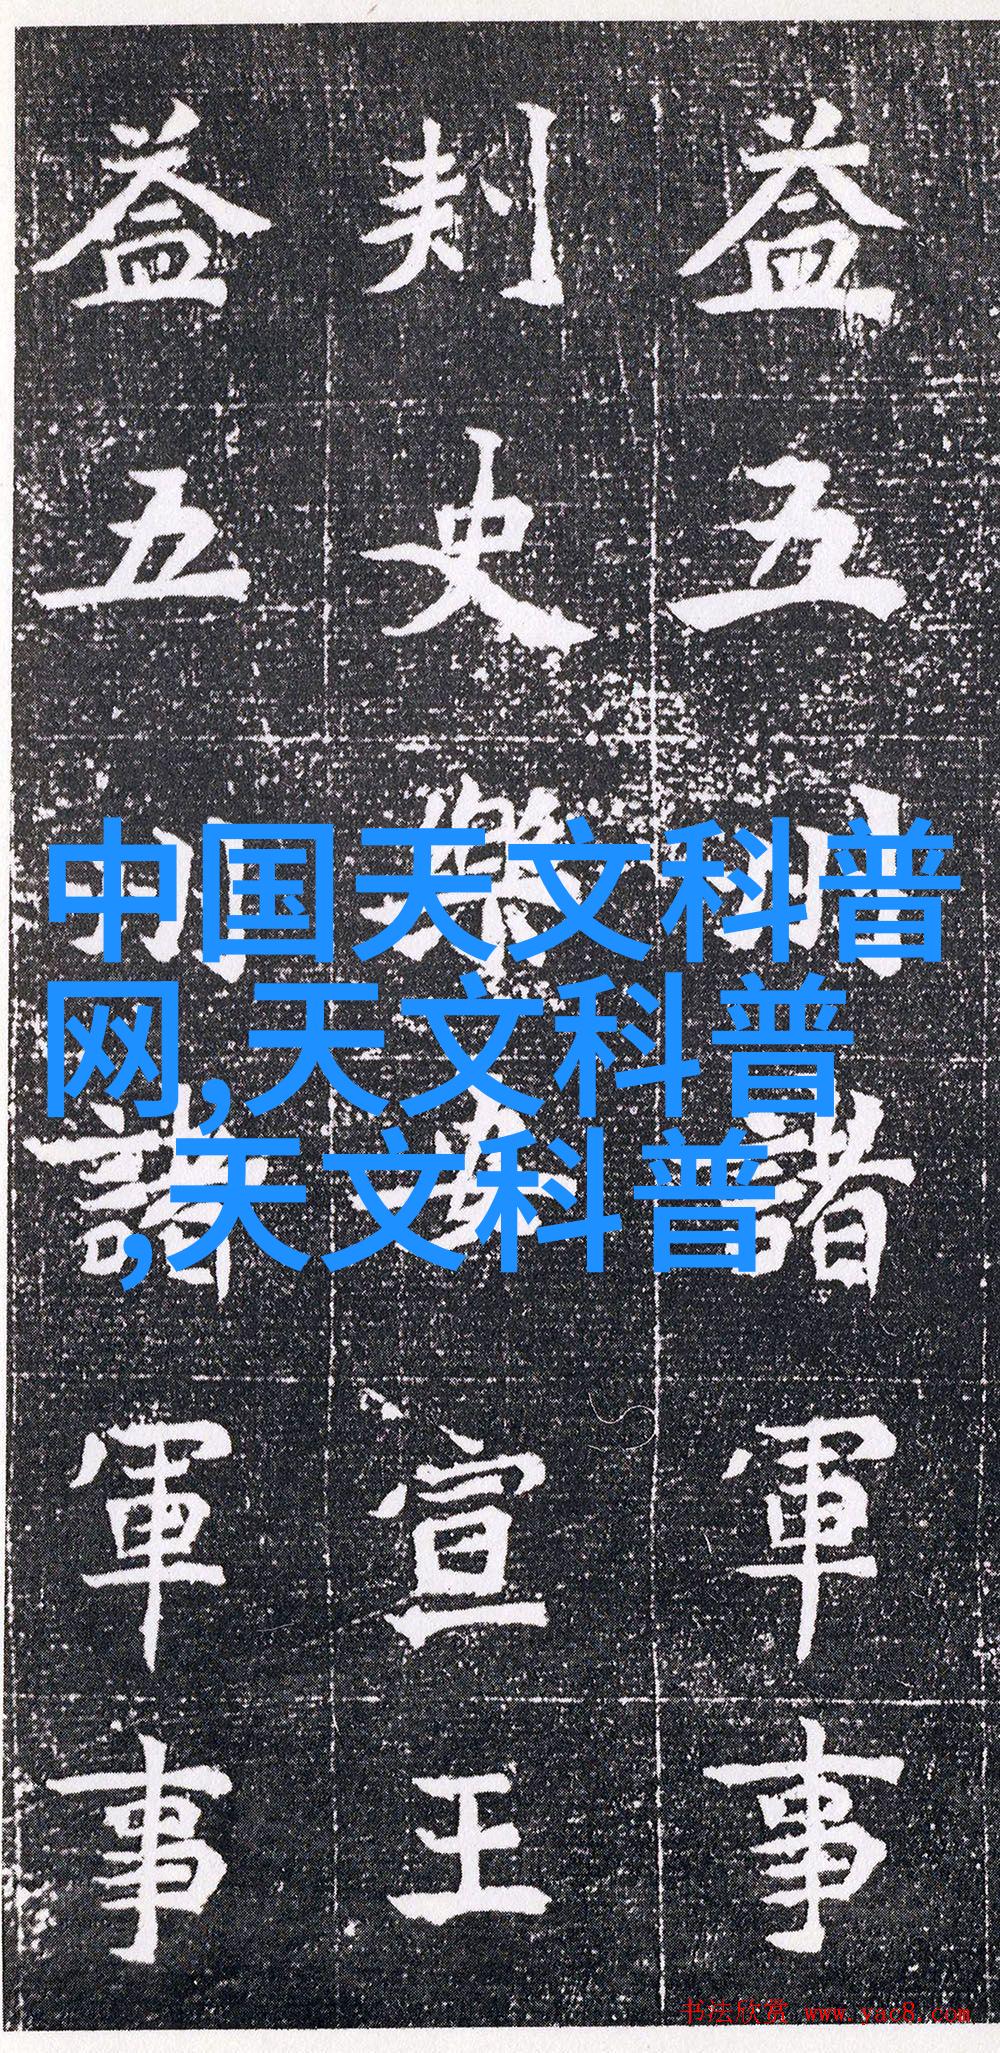 益五州諸軍事
刺史樂安宣王
益五州諸軍事
中国天文科普
网,天文科普
,天文科普
书法欣赏 www.yac8.com